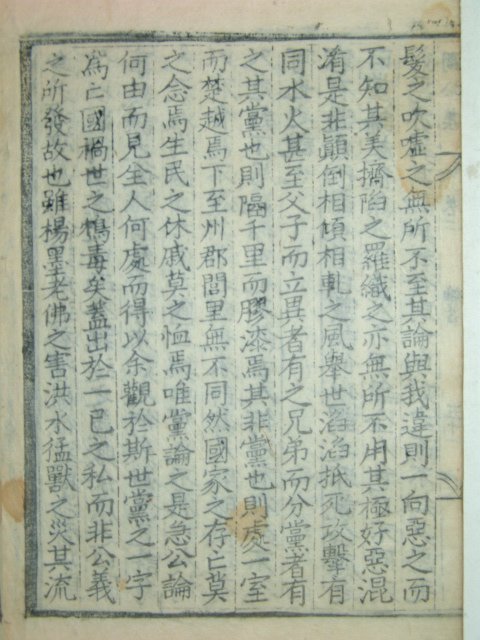 髮之吹噓之無所不至其論與我違則一向惡之而
不知其美擠陷之羅織之亦無所不用其極好惡混
淆是非顚倒相傾相軋之風舉世滔滔抵死攻擊有
同水火甚至父子而立異者有之兄弟而分黨者有
之其黨也則隔千里而膠漆焉其非黨也則處一室
而楚越焉下至州郡閭里無不同然國家之存亡莫
之念焉生民之休戚莫之恤焉唯黨論之是急公論
何由而見全人何處而得以余觀於斯世黨之一字
爲亡國禍世之鴆毒矣蓋出於一己之私而非公義
之所發故也雖楊墨老佛之害洪水猛獸之災其流